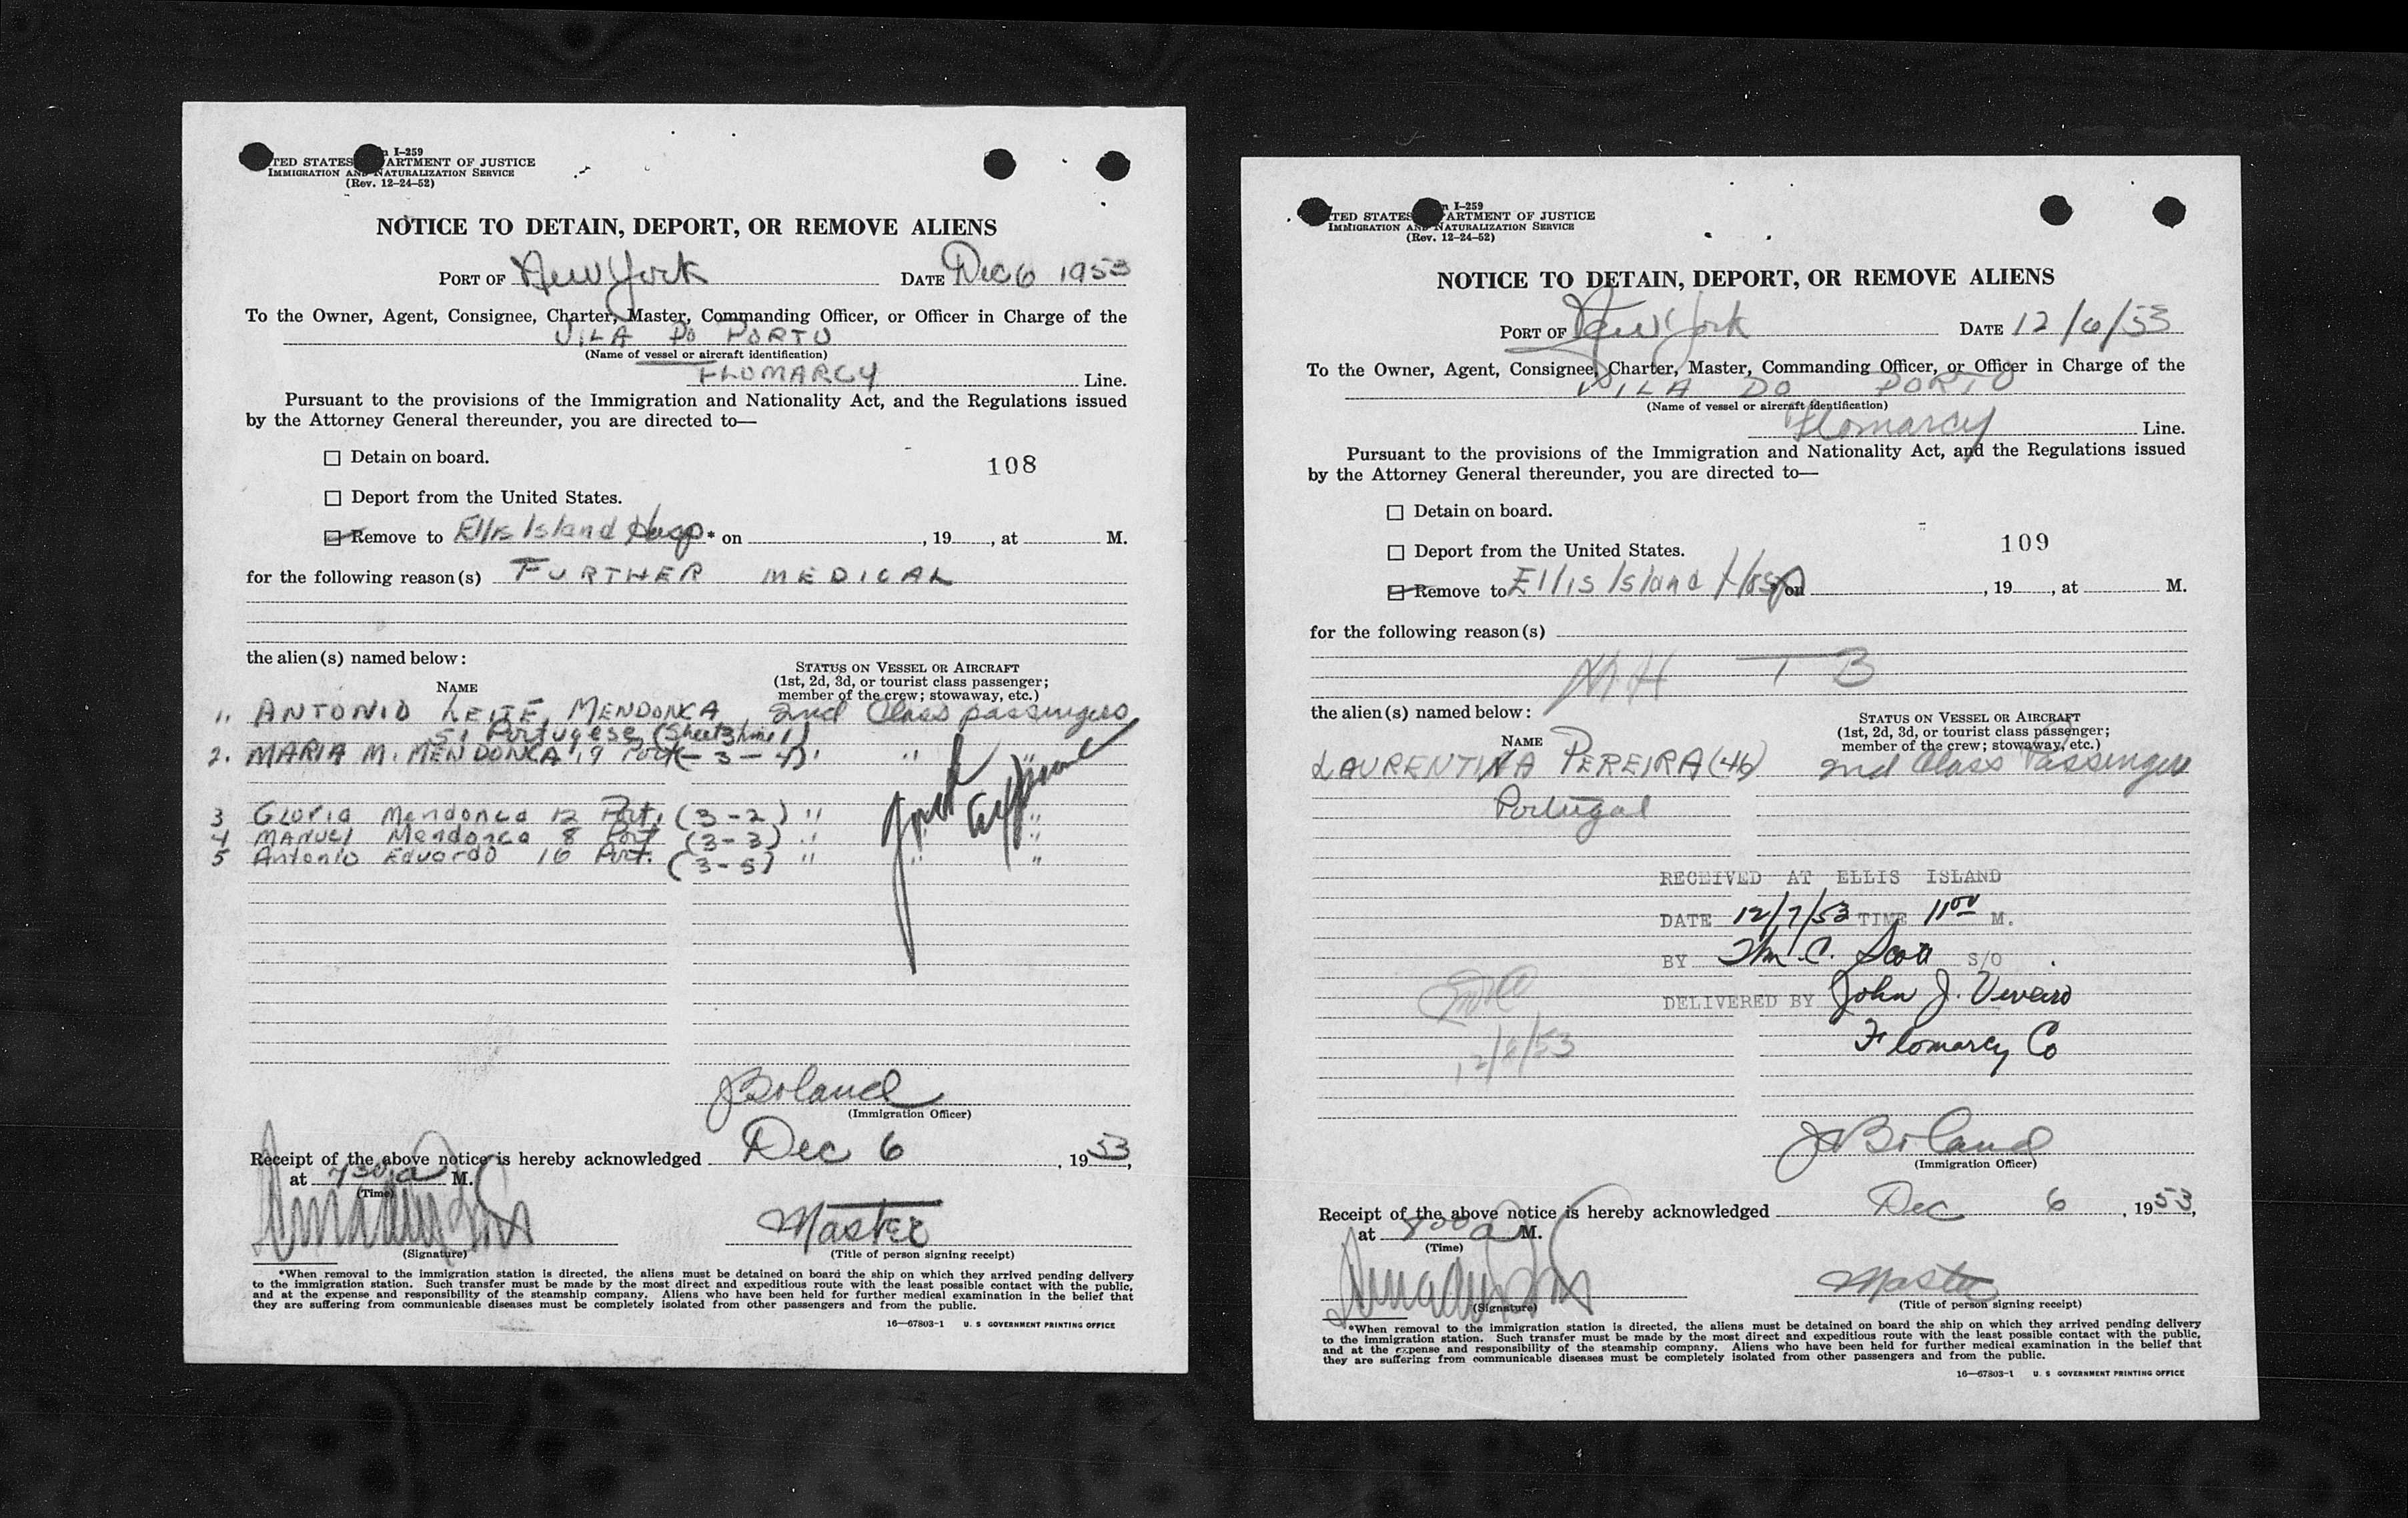 I-259
TED STATES ARTMENT OF JUSTICE
IMMIGRATION AND NATURALIZATION SERVICE
(Rev. 12-24-52)
NOTICE TO DETAIN, DEPORT, OR REMOVE ALIENS
PORT OF New York DATE Dec 6 1953
To the Owner, Agent, Consignee, Charter, Master, Commanding Officer, or Officer in Charge of the
VILA DO PORTO
(Name of vessel or aircraft identification)
FLOMARCY Line.
Pursuant to the provisions of the Immigration and Nationality Act, and the Regulations issued
by the Attorney General thereunder, you are directed to—
☐ Detain on board.
108
☐ Deport from the United States.
Remove to Ellis Island Hosp * on , 19 , at M.
for the following reason(s) FURTHER MEDICAL
the alien(s) named below:
STATUS ON VESSEL OR AIRCRAFT
(1st, 2d, 3d, or tourist class passenger;
member of the crew; stowaway, etc.)
NAME
1. ANTONIO LEITE, MENDONCA 2nd Class passengers
51 Portugese (Sheet 3 line 1)
2. MARIA M. MENDONCA 19 Port (- 3 - 4) " " "
3 Gloria Mendonca 12 Port. (3-2) " "
4 Manuel Mendonca 8 Port (3-3) " "
5 Antonio Eduardo 16 Port. (3-5) " " "
J Boland
(Immigration Officer)
Receipt of the above notice is hereby acknowledged Dec 6 , 1953,
at 730 a M.
(Time)
Master
(Signature) (Title of person signing receipt)
*When removal to the immigration station is directed, the aliens must be detained on board the ship on which they arrived pending delivery
to the immigration station. Such transfer must be made by the most direct and expeditious route with the least possible contact with the public,
and at the expense and responsibility of the steamship company. Aliens who have been held for further medical examination in the belief that
they are suffering from communicable diseases must be completely isolated from other passengers and from the public.
16—67803-1 U. S GOVERNMENT PRINTING OFFICE
I-259
TED STATES ARTMENT OF JUSTICE
IMMIGRATION AND NATURALIZATION SERVICE
(Rev. 12-24-52)
NOTICE TO DETAIN, DEPORT, OR REMOVE ALIENS
PORT OF New York DATE 12/6/53
To the Owner, Agent, Consignee, Charter, Master, Commanding Officer, or Officer in Charge of the
VILA DO PORTO
(Name of vessel or aircraft identification)
Flomarcy Line.
Pursuant to the provisions of the Immigration and Nationality Act, and the Regulations issued
by the Attorney General thereunder, you are directed to—
☐ Detain on board.
109
☐ Deport from the United States.
Remove to Ellis Island Hosp on , 19 , at M.
for the following reason(s)
MH TB
the alien(s) named below:
STATUS ON VESSEL OR AIRCRAFT
(1st, 2d, 3d, or tourist class passenger;
member of the crew; stowaway, etc.)
NAME
LAURENTINA PEREIRA (46) 2nd Class Passenger
Portugal
RECEIVED AT ELLIS ISLAND
DATE 12/7/53 TIME 11 00 M.
BY Wm. C. Scott S/O
DELIVERED BY John J. Viveiro
Flomarcy Co
12/6/53
J Boland
(Immigration Officer)
Receipt of the above notice is hereby acknowledged Dec 6 , 1953,
at a M.
(Time)
Master
(Signature) (Title of person signing receipt)
*When removal to the immigration station is directed, the aliens must be detained on board the ship on which they arrived pending delivery
to the immigration station. Such transfer must be made by the most direct and expeditious route with the least possible contact with the public,
and at the expense and responsibility of the steamship company. Aliens who have been held for further medical examination in the belief that
they are suffering from communicable diseases must be completely isolated from other passengers and from the public.
16—67803-1 U. S GOVERNMENT PRINTING OFFICE